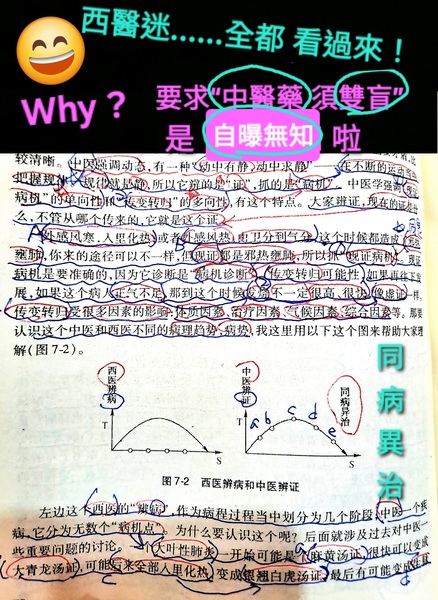 西醫迷......全都 看過來！
Why？ 要求“中醫藥 須雙盲”
是 自曝無知 啦
较清晰。中医强调动态，有一种“动中有静，动中求静”
在不断的运动当中
把握规律，规律就是静，所以它辨的是“证”，抓的是“病机”。中医学强调
病机”的单向性和“传变转归”的多向性，有这个特点。大家辨证，现在的证是什
么，不管从哪个传来的，它就是这个证
外感风寒，入里化热，或者外感风热，由卫分到气分，这个时候都造成
壅肺，你来的途径可以不一样，但现证都是邪热壅肺，所以抓“现证病机”，现证
病机是要准确的，因为它诊断是“病机诊断”，传变转归可能性，如果再往下发
展，如果这个病人正气不足，那到这个时候发烧不一定很高、很快像虚证一样。
传变转归受很多因素的影响，体质因素、治疗因素、气候因素、综合因素等。那要
认识这个中医和西医不同的病理趋势、病势，我这里用以下这个图来帮助大家理
解(图 7-2)。
西医辨病
T
S
中医辨证
同病异治
a b c d e
T
S
同病異治
图7-2 西医辨病和中医辨证
左边这个西医的“辨病”，作为病程过程当中划分为几个阶段，中医一个疾
病，它分为无数个“病机点”。为什么要认识这个呢？后面就涉及过去对中医一
些重要问题的讨论。一个大叶性肺炎一开始可能是个麻黄汤证，很快可以变成
大青龙汤证，可能后来全部入里化热，变成银翘白虎汤证，最后有可能变成生